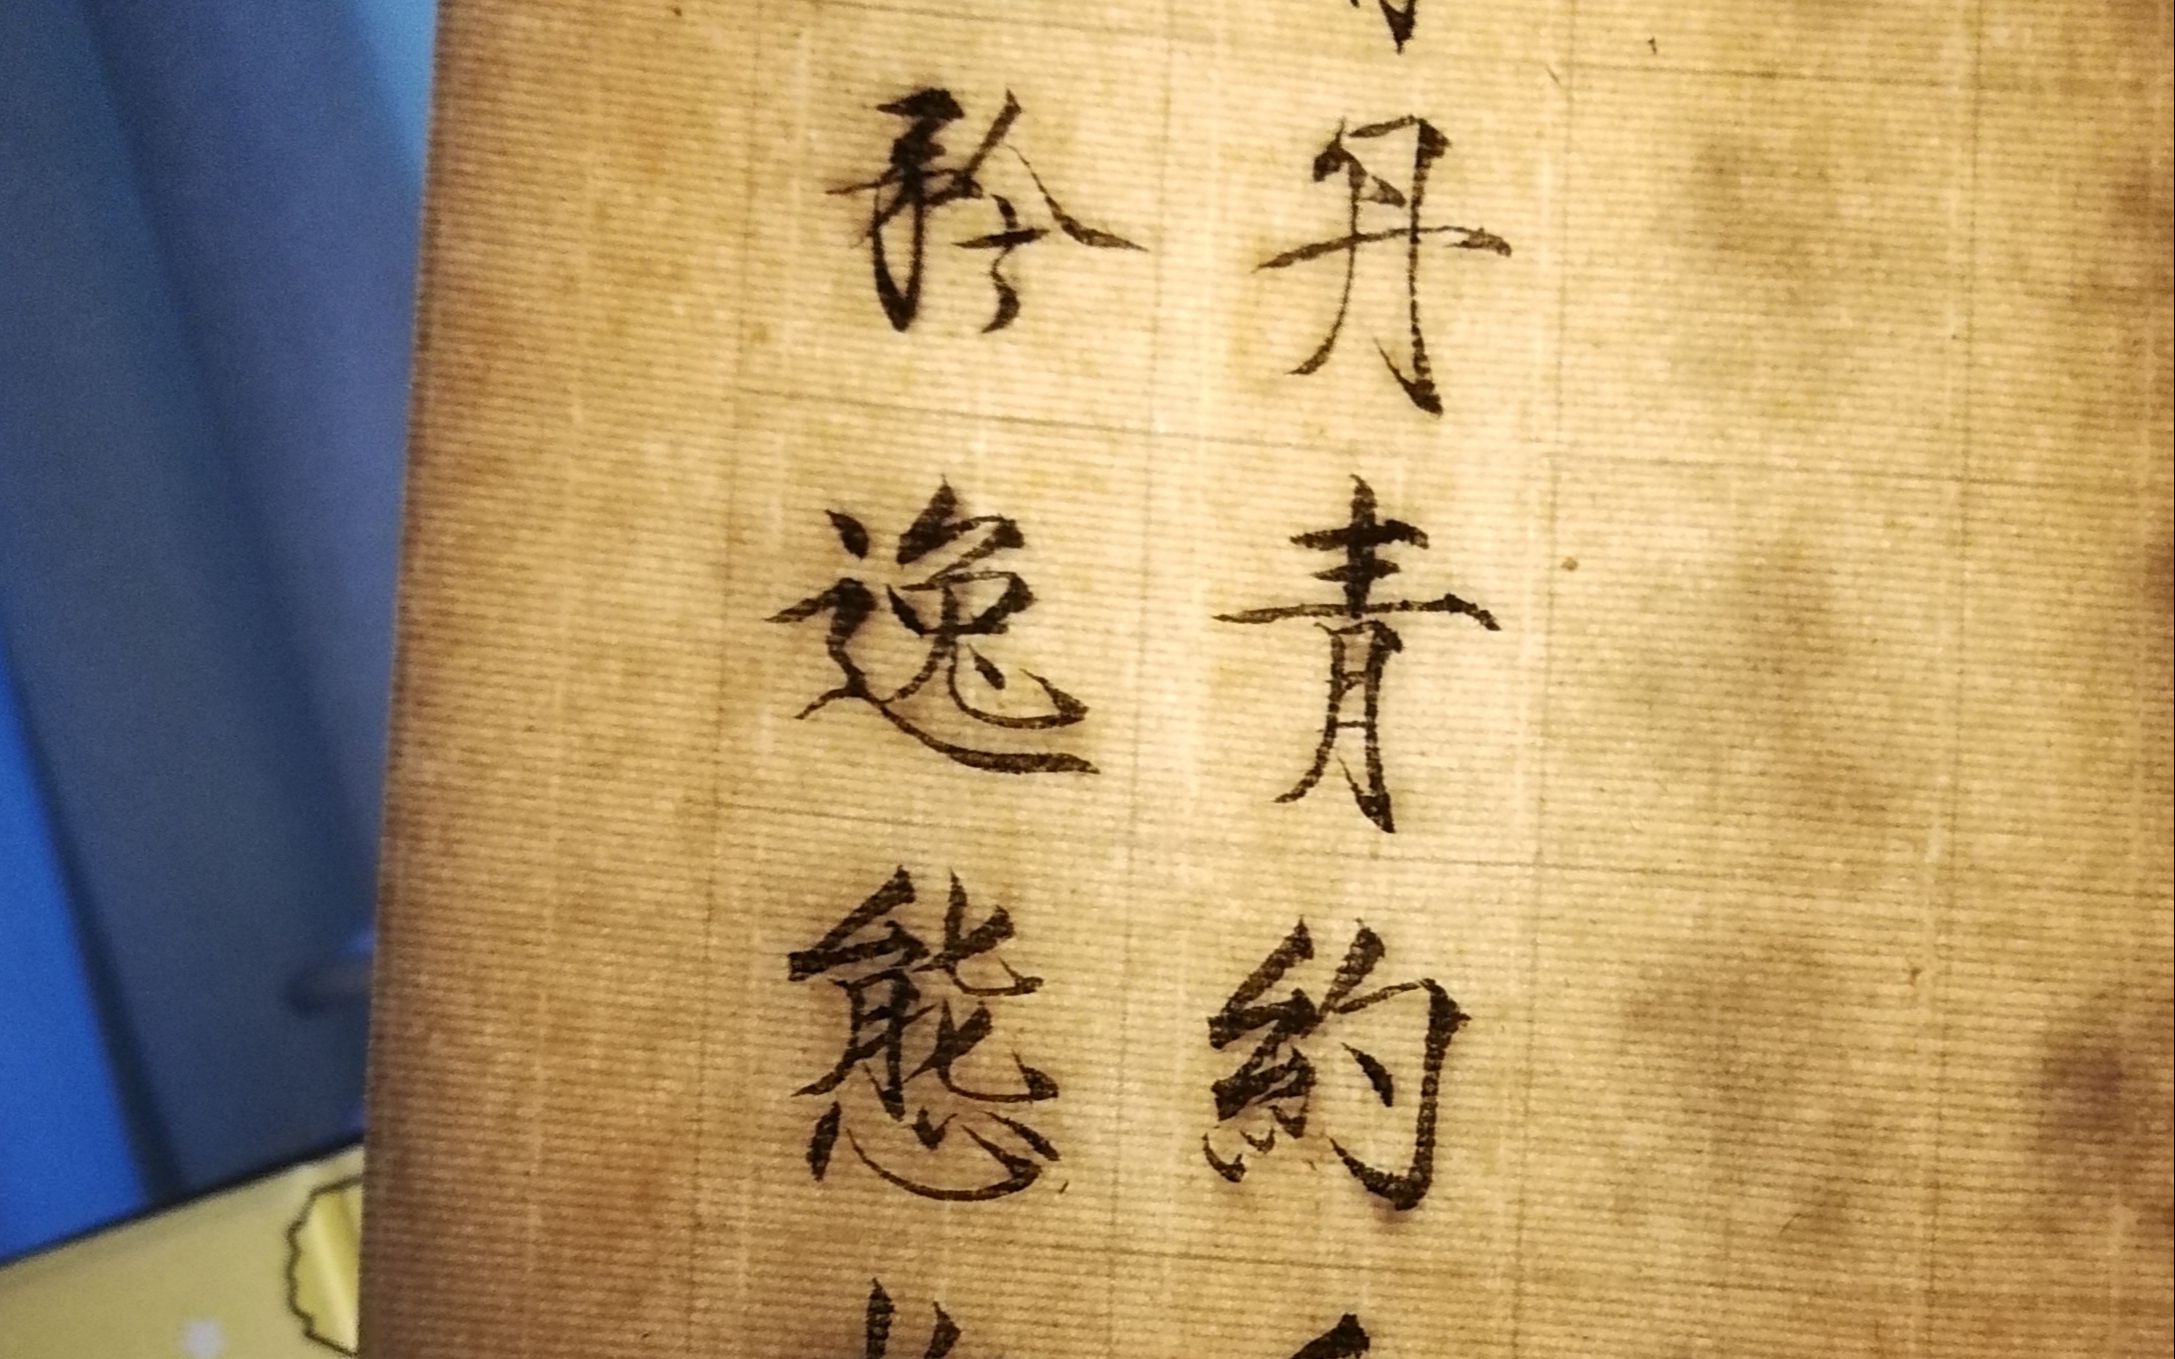 丹青約
矜逸態